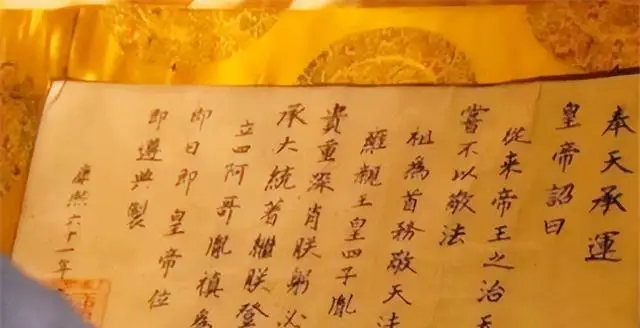 奉天承運
皇帝詔曰
從来帝王之治天
嘗不以敬法
祖為首務敬天法
雍親王皇四子胤
貴重深肖朕躬必
承大統著繼朕登
立四阿哥胤禛為
即日即皇帝位
即遵典製
康熙六十一年